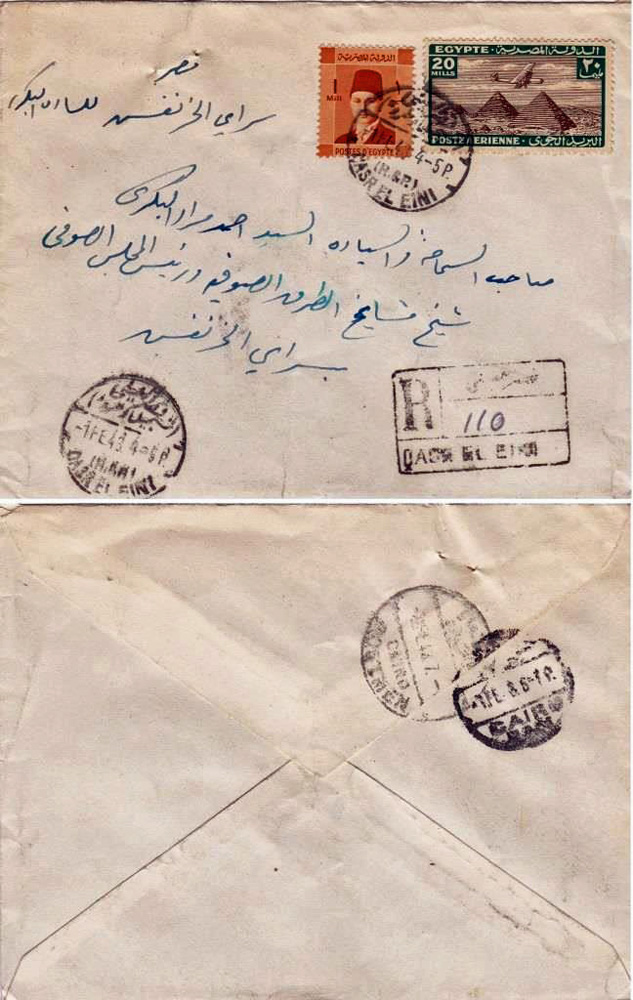 مصر
سراي الخرنفش للساده البكري
الدولة المصرية
1
Mill
POSTES D'EGYPTE
EGYPTE الدولة المصرية
20
MILLS
٢٠
مليم
POSTE AERIENNE البريد الجوى
4-5 P.
(R.&P.)
QASR EL EINI
صاحب السماحة والسياده السيد احمد مراد البكرى
شيخ مشايخ الطرق الصوفيه ورئيس المجلس الصوفى
سراي الخرنفش
-1 FE 43 4-5 P.
(R.&P.)
QASR EL EINI
R
110
QASR EL EINI
CAIRO
-1 FE 6-7 P.
CAIRO